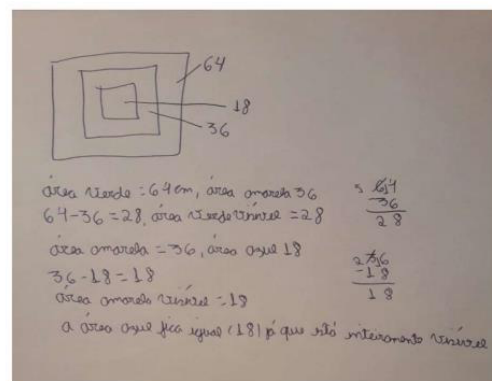 64
18
36
área verde = 64 cm, área amarela 36
64-36 = 28, área verde visível = 28
5 64
36
28
área amarela = 36, área azul 18
36-18 = 18
2 36
-18
18
área amarela visível = 18
a área azul fica igual (18) já que está inteiramente visível